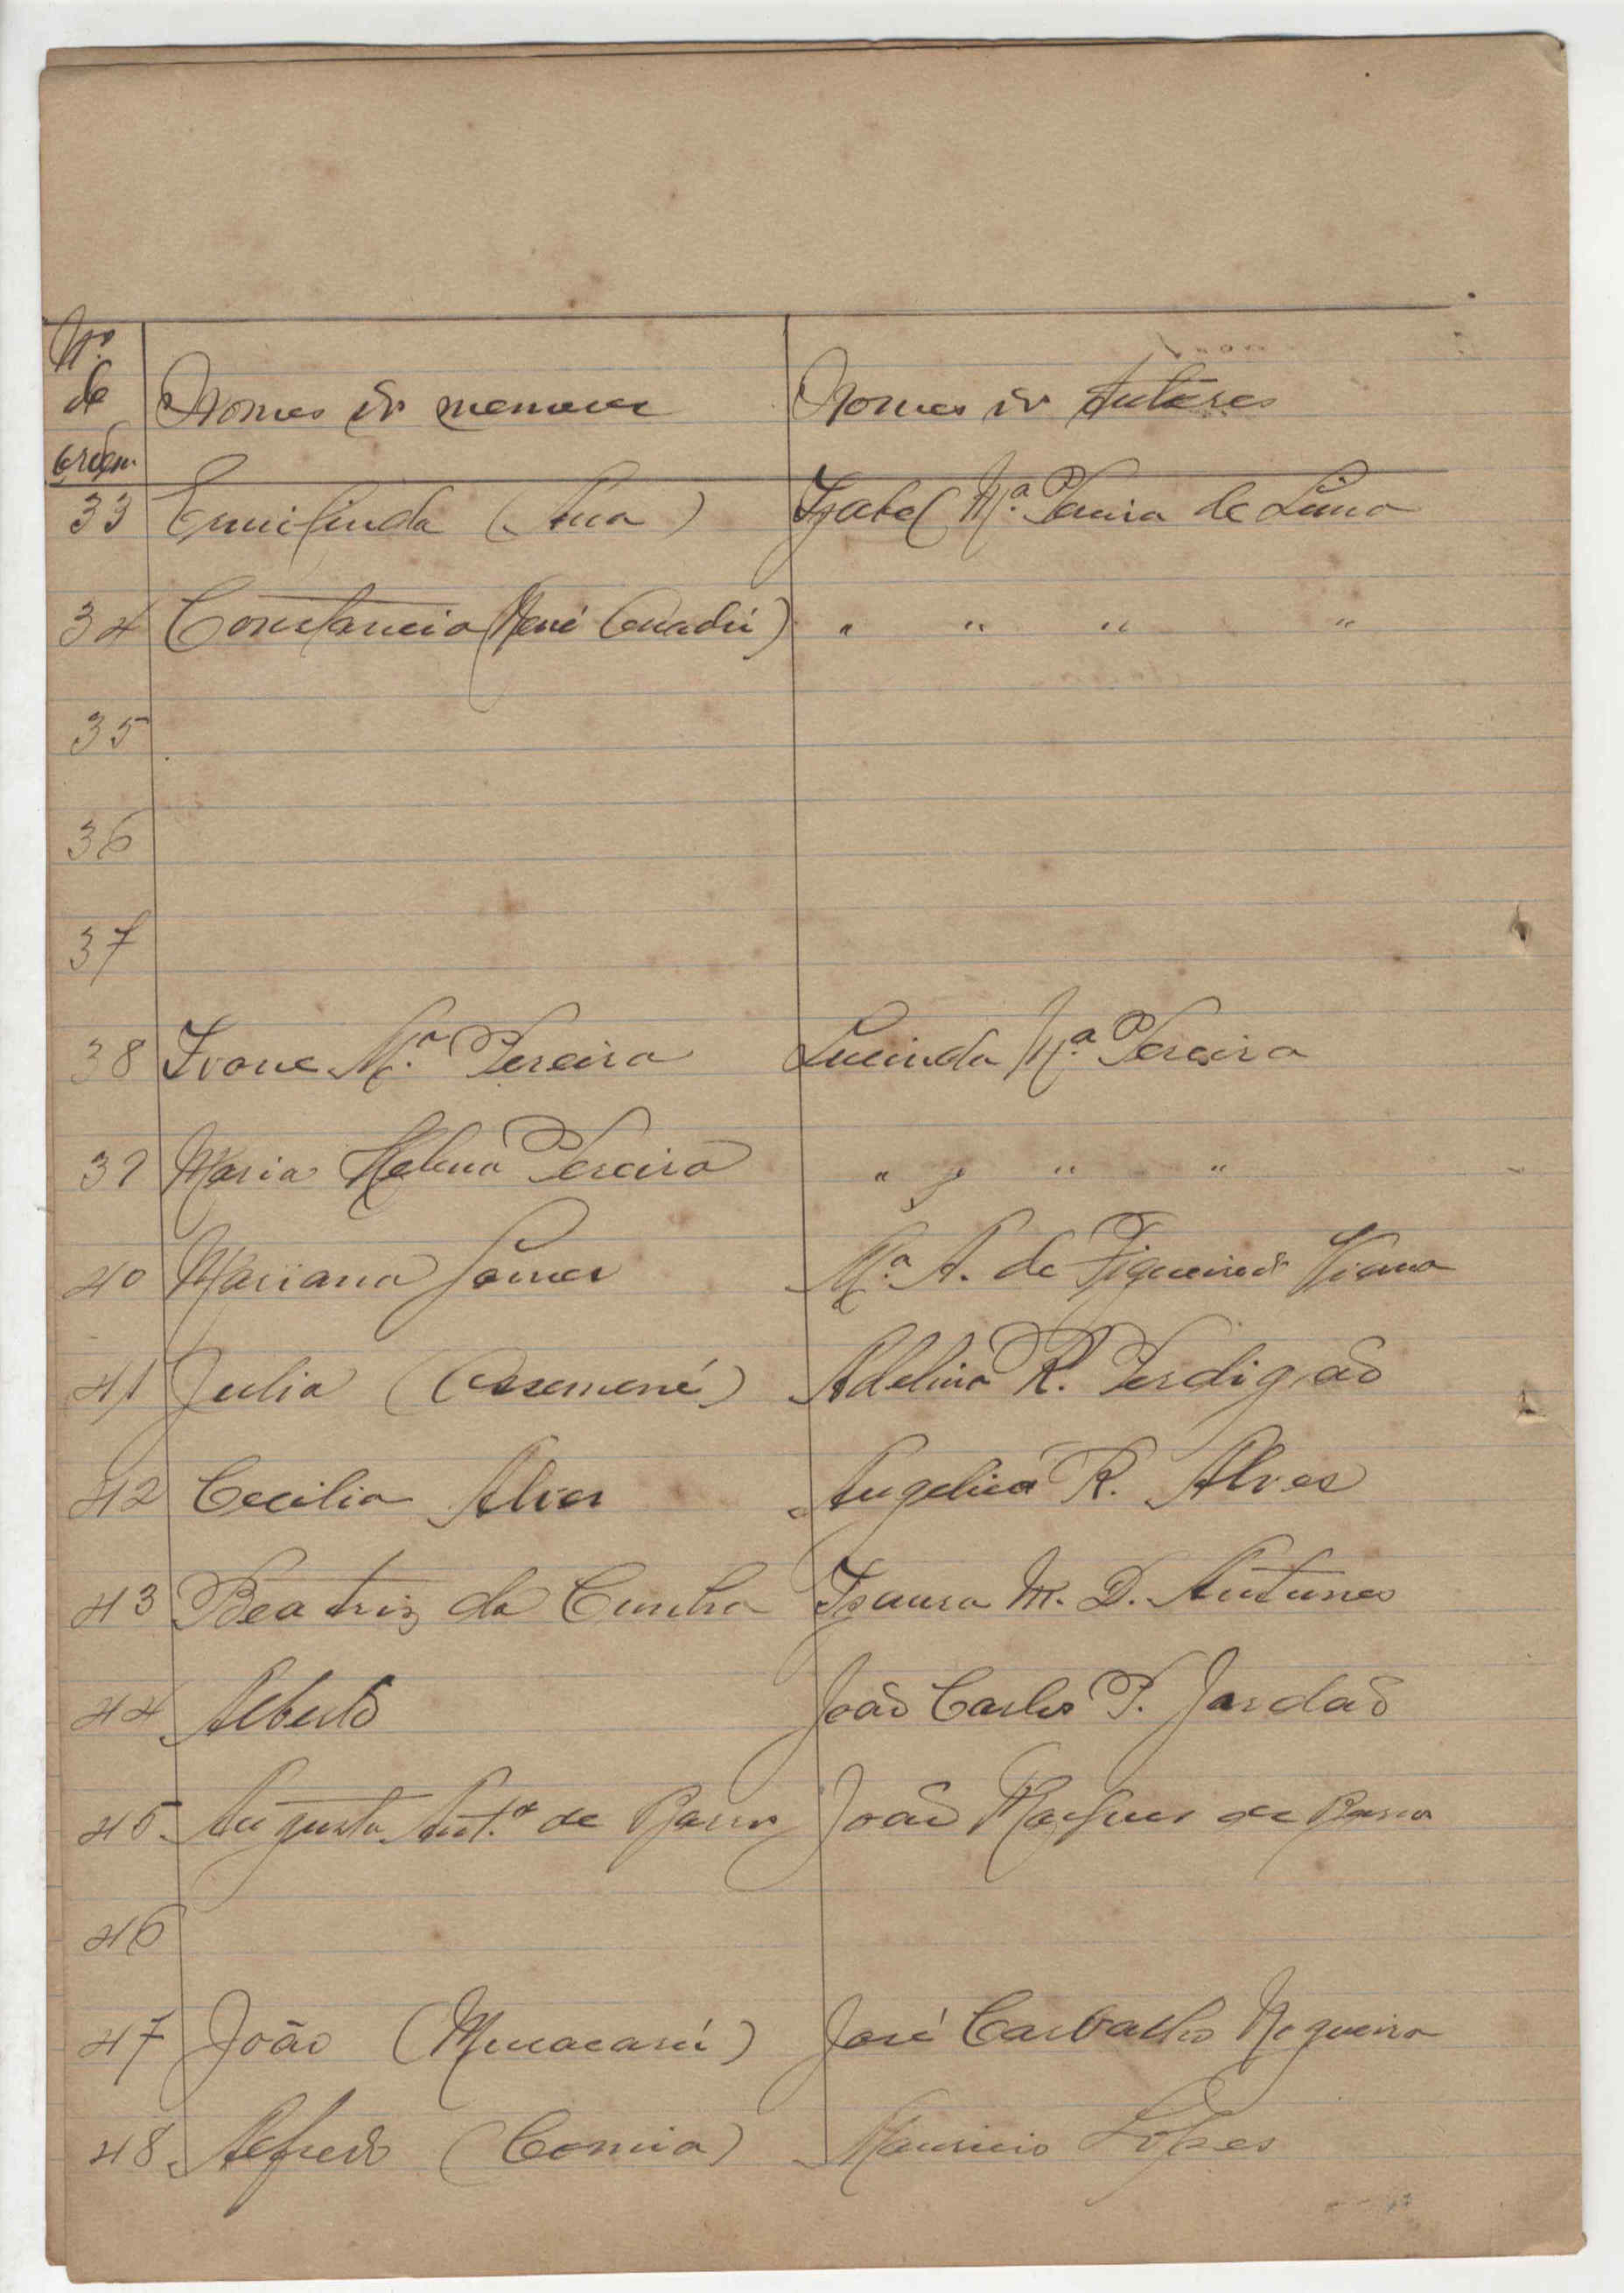 Nº
de
ordem
Nomes dos menores
Nomes dos tutores
33 Ermilinda ( ) Izabel Mª Pereira de Lima
34 Constancia ( ) " " " "
35
36
37
38 Ivone Mª Pereira Lucinda Mª Pereira
39 Maria Helena Pereira " " " "
40 Mariana Gomes Mª A. de Figueiredo Viana
41 Julia (Assemené) Adelina R. Perdigão
42 Cecilia Alves Angelica R. Alves
43 Beatriz da Cunha Isaura M. D. Antunes
44 Alberto João Carlos P. Jardão
45 Augusto Antº de Barros João Marques de Barros
46
47 João ( ) José Carvalho Nogueira
48 Alfredo ( ) Mauricio Lopes